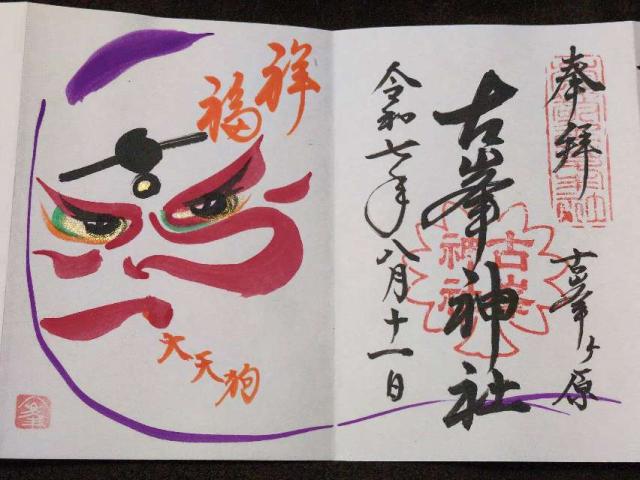 奉拝
古峯ヶ原
古峯神社
古峯
神社
令和七年八月十一日
祥
福
大天狗